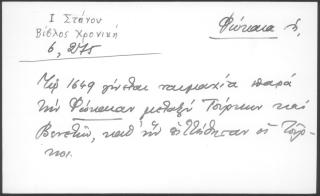 Ι Στάνου
Βίβλος Χρονική
6, 275
Φώκαια ἡ,
Τῷ 1649 γίνεται ναυμαχία παρά
τὴν Φώκαιαν μεταξὺ Τούρκων καὶ
Βενετῶν, καθ' ἣν ἡττήθησαν οἱ Τοῦρ-
κοι.